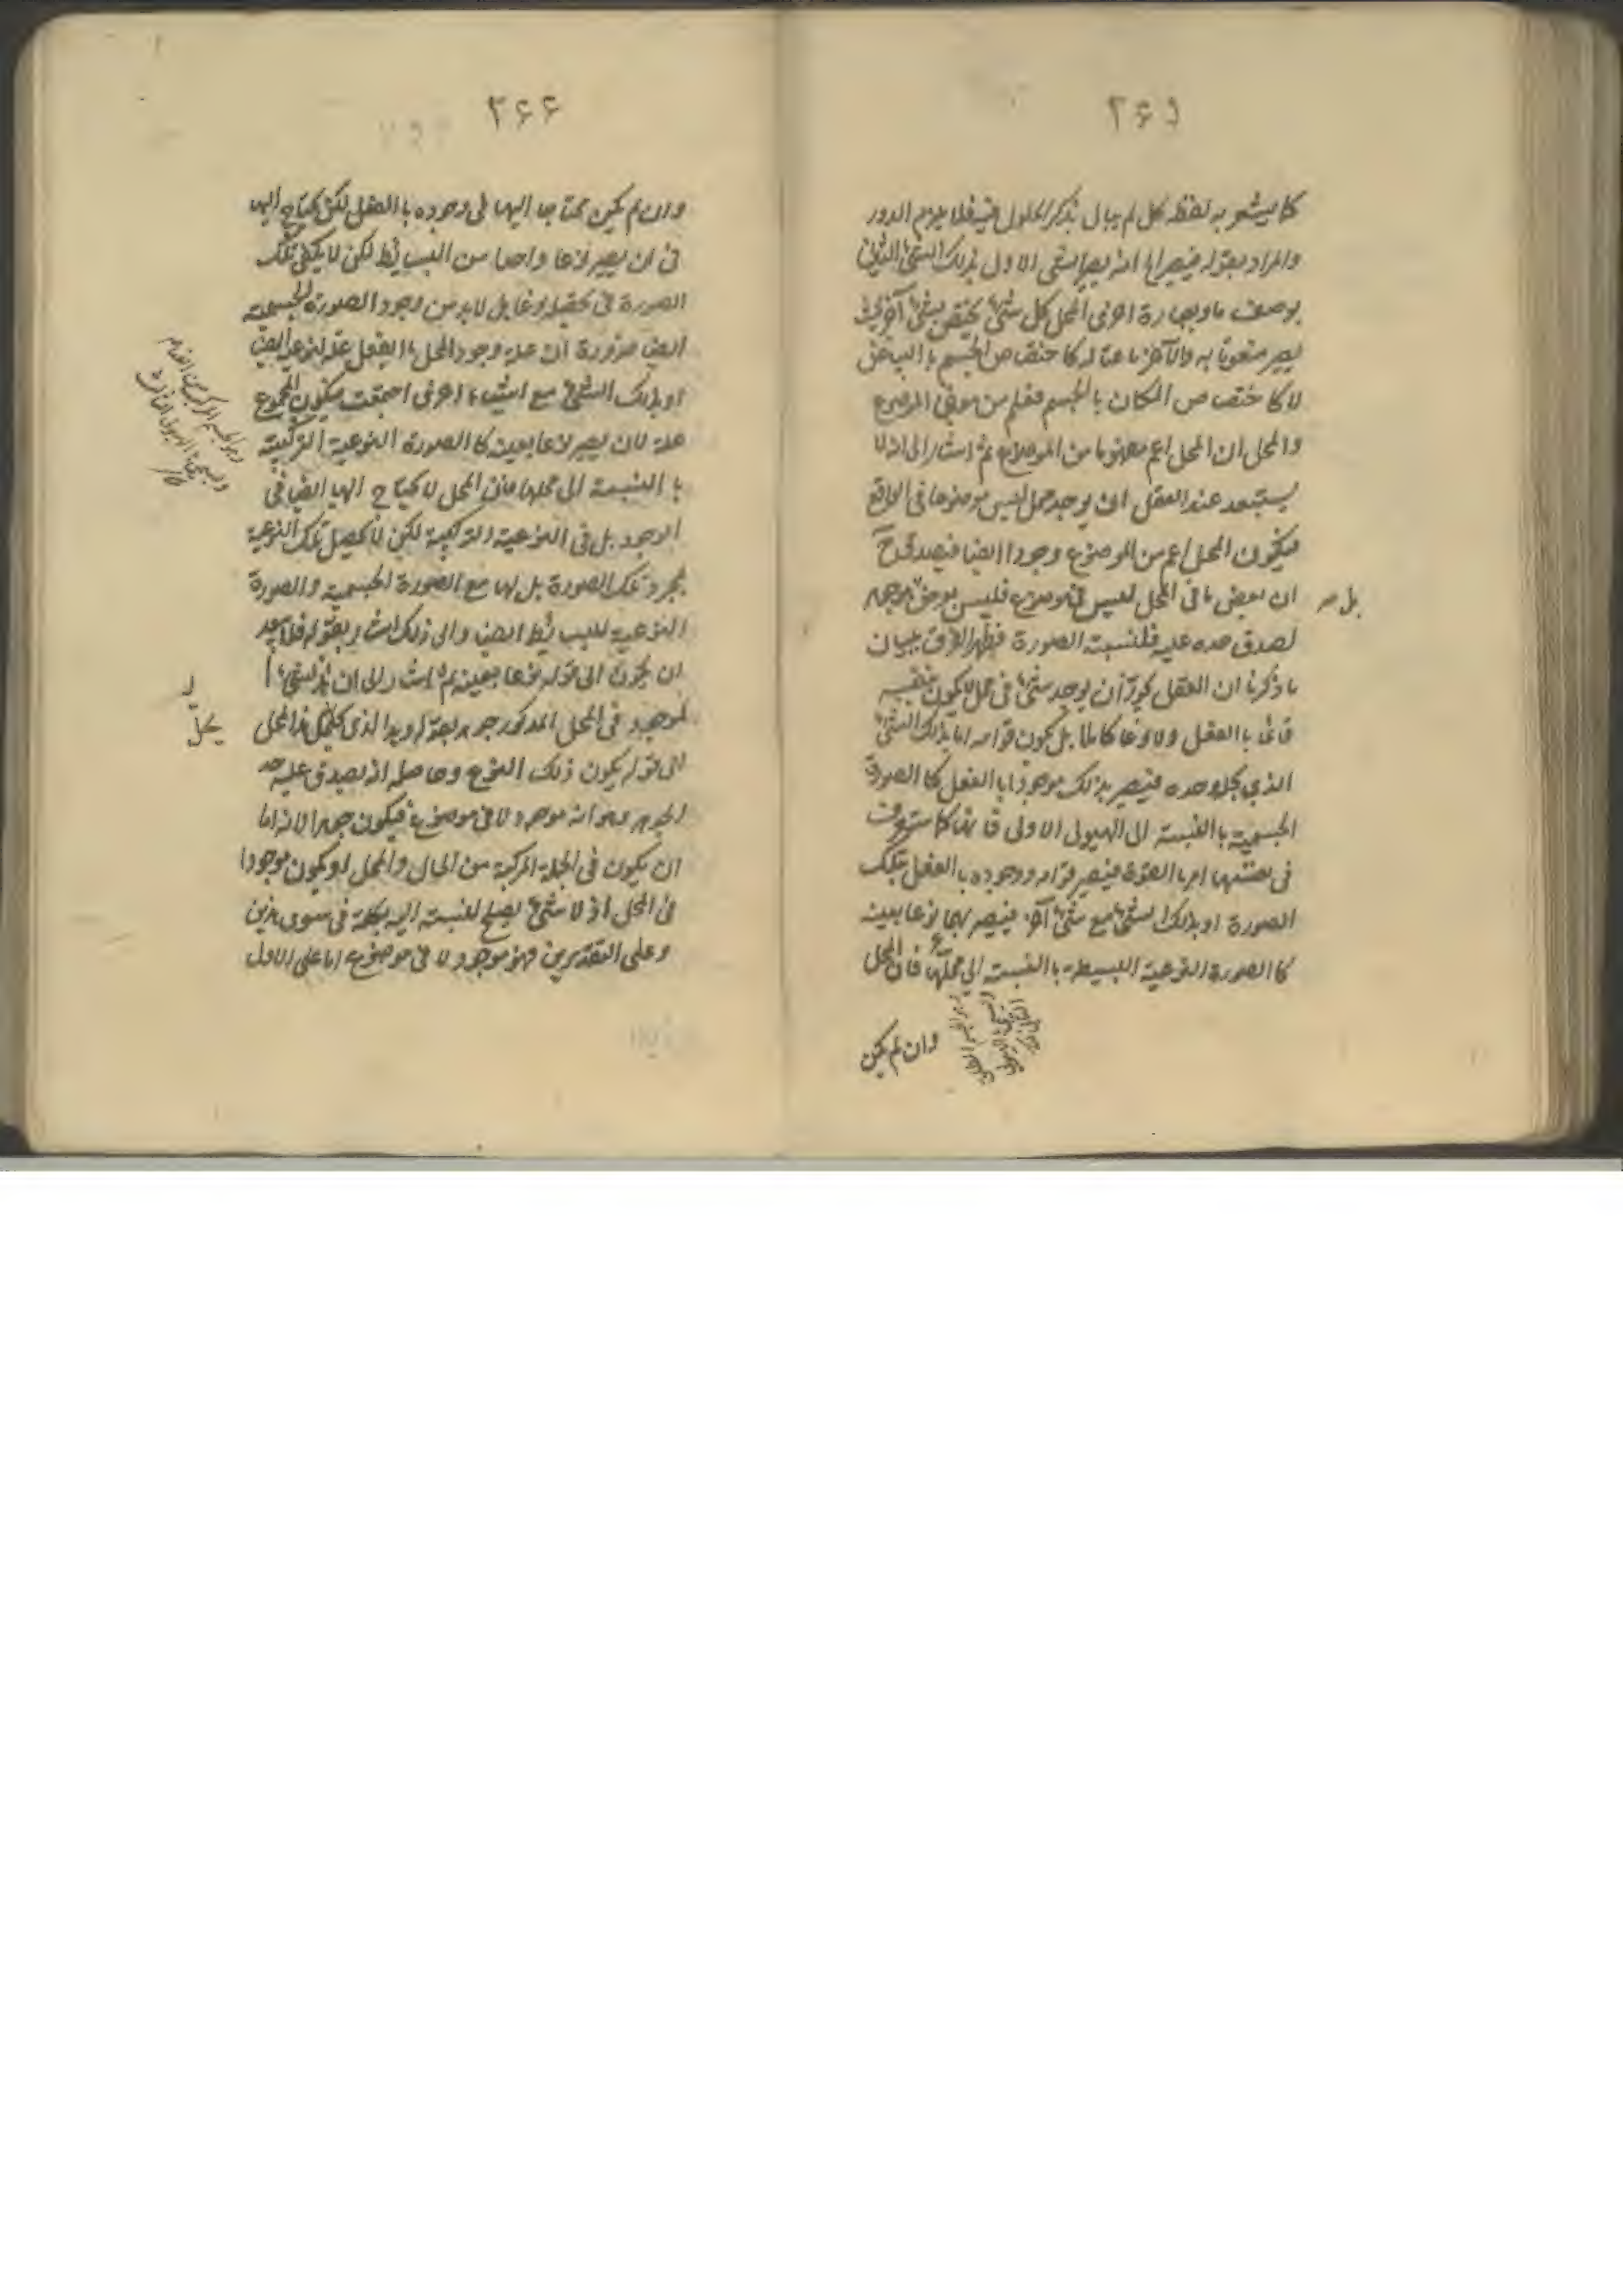 ۲۶۵
كما يشعر به لفظ كل لم يبال بذكر الحلول فيه فلا يلزم الدور
والمراد بقوله فيصير انه يصير الشئ الاول بذلك الشئ الثانى
بوصف ما وبعبارة اخرى المحل كل شئ يختص بشئ آخر بحيث
يصير منعوتا به والآخر ناعتا له كاختصاص الجسم بالبياض
لا كاختصاص المكان بالجسم فعلم من معنى الموضوع
والمحل ان المحل اعم مفهوما من الموضوع ثم اشار الى انه لا
يستبعد عند العقل ان يوجد محل ليس موضوعا فى الواقع
فيكون المحل اعم من الموضوع وجودا ايضا فيصدق ح
ان بعض ما فى المحل ليس فى موضوع فليس بعرض جوهر
بل صح
لصدق حده عليه فلنسبة الصورة فظهر الفرق ببيان
ما ذكرنا ان العقل يجوز ان يوجد شئ فى محل لا يكون بنفسه
قائما بالفعل ولا نوعا كاملا بل يكون قوامه اما بذلك الشئ
الذى يحل وحده فيصير بذلك موجودا بالفعل كالصورة
الجسمية بالنسبة الى الهيولى الاولى فانها كما ستعرف
فى نفسها امر بالقوة فيصير قوامه ووجوده بالفعل بتلك
الصورة او بذلك الشئ مع شئ آخر فيصير بهما نوعا بعينه
كالصورة النوعية البسيطة بالنسبة الى محلها فان المحل
وان لم يكن
۲۶۶
وان لم يكن محتاجا اليها فى وجوده بالفعل لكن يحتاج اليها
فى ان يصير نوعا واحدا من البسايط لكن لا يكفى تلك
الصورة فى تحصيله نوعا بل لابد من وجود الصورة الجسمية
ايضا ضرورة ان علة وجود المحل بالفعل علة لنوعه ايضا
او بذلك الشئ مع اشياء اخرى اجتمعت فيكون المجموع
علة لان يصير نوعا بعينه كالصورة النوعية التركيبية
بالنسبة الى محلها فان المحل لا يحتاج اليها ايضا فى
الوجود بل فى النوعية التركيبية لكن لا يحصل تلك النوعية
بمجرد تلك الصورة بل لها مع الصورة الجسمية والصورة
النوعية للبسايط ايضا والى ذلك اشار بقوله فلا يبعد
ان يكون الى قوله نوعا بعينه ثم اشار الى ان هذا الشئ
الموجود فى المحل المذكور جوهر بقوله وهذا الذى يحل هذا المحل
يحل
الى قوله يكون ذلك النوع وحاصله انه يصدق عليه حد
الجوهر وهو انه موجود لا فى موضوع فيكون جوهرا لانه اما
ان يكون فى الجملة المركبة من الحال والمحل او يكون موجودا
فى المحل اذ لا شئ يصلح لنسبته اليه بكلمة فى سوى هذين
وعلى التقديرين فهو موجود لا فى موضوع اما على الاول